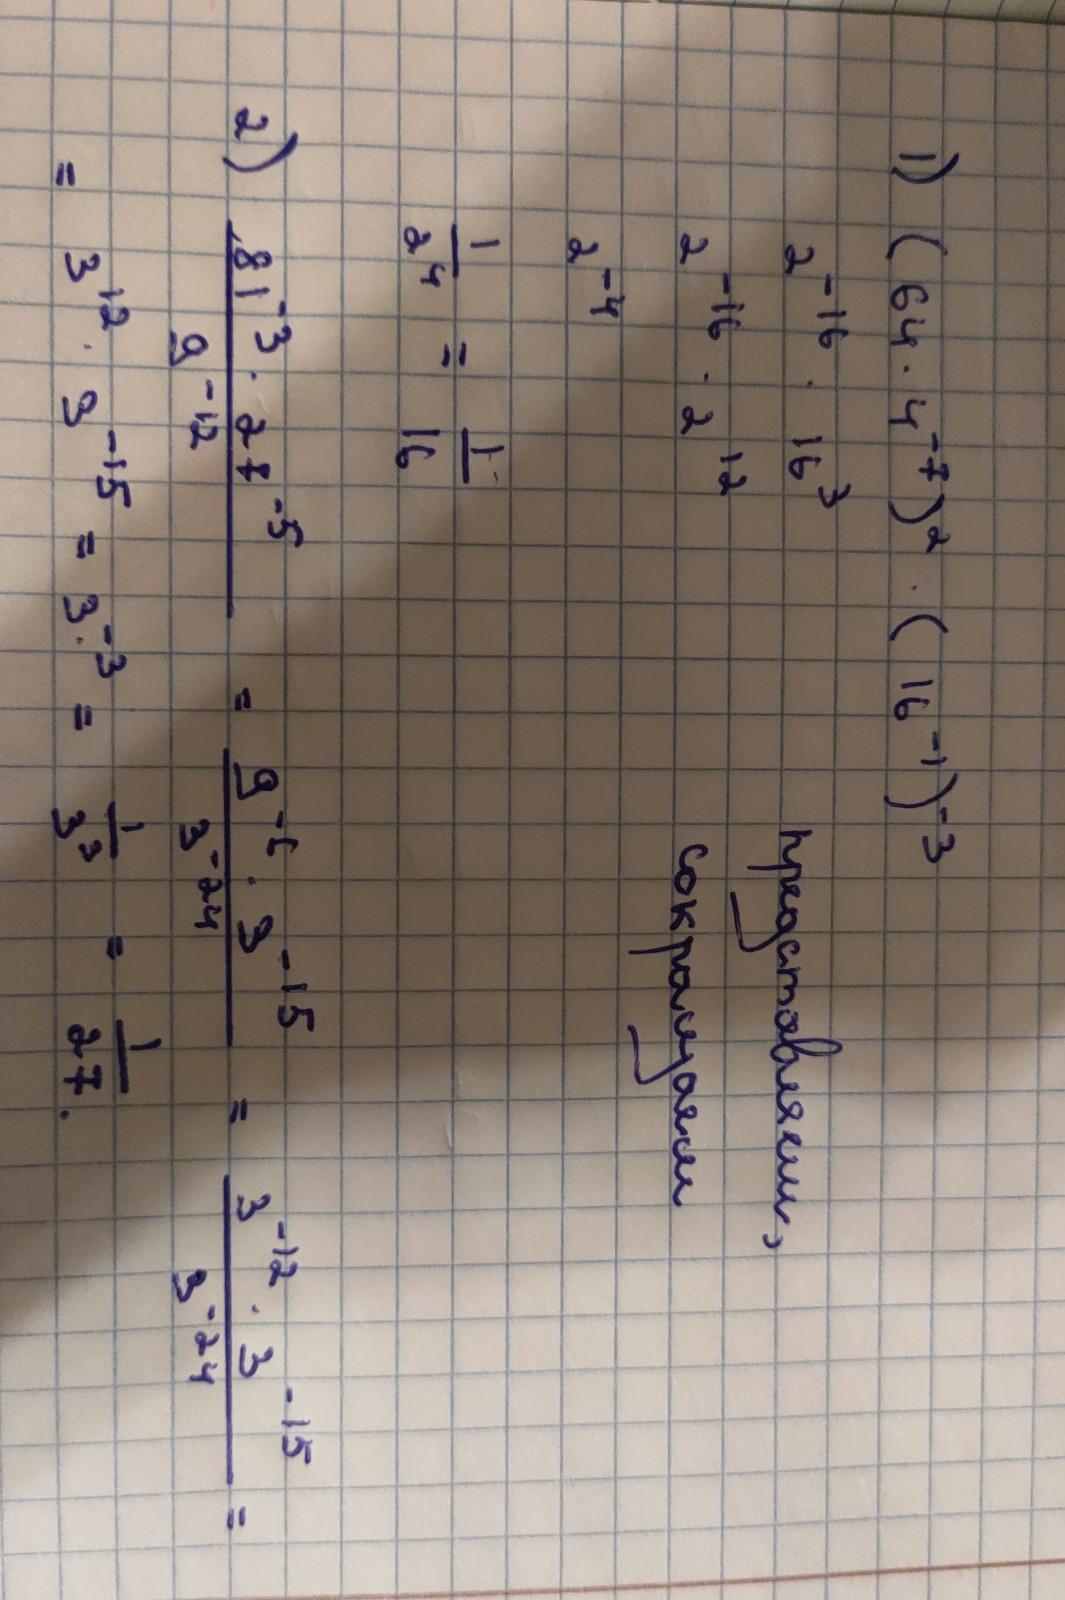 1) (64 · 4⁻⁷)² · (16⁻¹)⁻³
2⁻¹⁶ · 16³ представляем,
2⁻¹⁶ · 2¹² сокращаем
2⁻⁴
1/2⁴ = 1/16
2) (81⁻³ · 27⁻⁵)/9⁻¹² = (9⁻⁶ · 3⁻¹⁵)/3⁻²⁴ = (3⁻¹² · 3⁻¹⁵)/3⁻²⁴ =
= 3¹² · 9⁻¹⁵ = 3⁻³ = 1/3³ = 1/27.